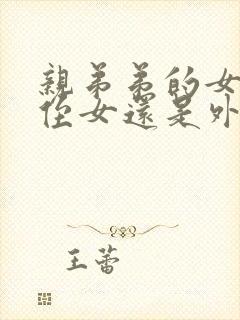 親弟弟的女
侄女還是外
王蕾